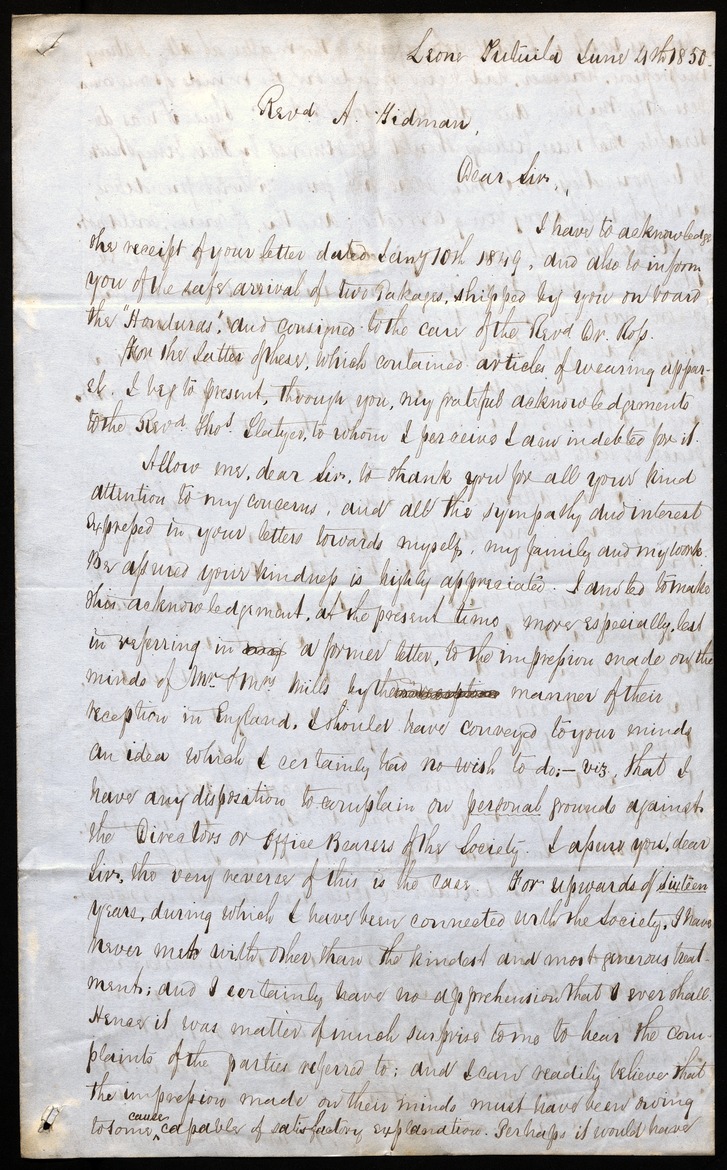 Leone Tutuila June 4th 1850.
Revd. A. Tidman,
Dear Sir,
I have to acknowledge
the receipt of your letter dated Jany 10th 1849, and also to inform
you of the safe arrival of two Pakages, shipped by you on board
the "Honduras", and consigned to the care of the Revd Dr. Ross.
For the latter of these, which contained articles of wearing appar-
el, I beg to present, through you, my grateful acknowledgements
to the Revd. Thos. to whom I perceive I am indebted for it.
Allow me, dear Sir, to thank you for all your kind
attention to my concerns, and all the sympathy and interest
expressed in your letters towards myself, my family and my work.
Be assured your kindness is highly appreciated. I am led to make
this acknowledgement, at the present time more especially, lest
in referring in a former letter, to the impression made on the
minds of Mr. & Mrs. Mills by the manner of their
reception in England, I should have conveyed to your minds
an idea which I certainly had no wish to do;— viz, that I
have any disposition to complain on personal grounds against
the Directors or Office Bearers of the Society. I assure you, dear
Sir, the very reverse of this is the case. For upwards of sixteen
years, during which I have been connected with the Society, I have
never met with other than the kindest and most generous treat-
ment; and I certainly have no apprehension that I ever shall.
Hence it was matter of much surprise to me to hear the com-
plaints of the parties referred to; and I can readily believe that
the impression made on their minds must have been owing
to some cause capable of satisfactory explanation. Perhaps it would have